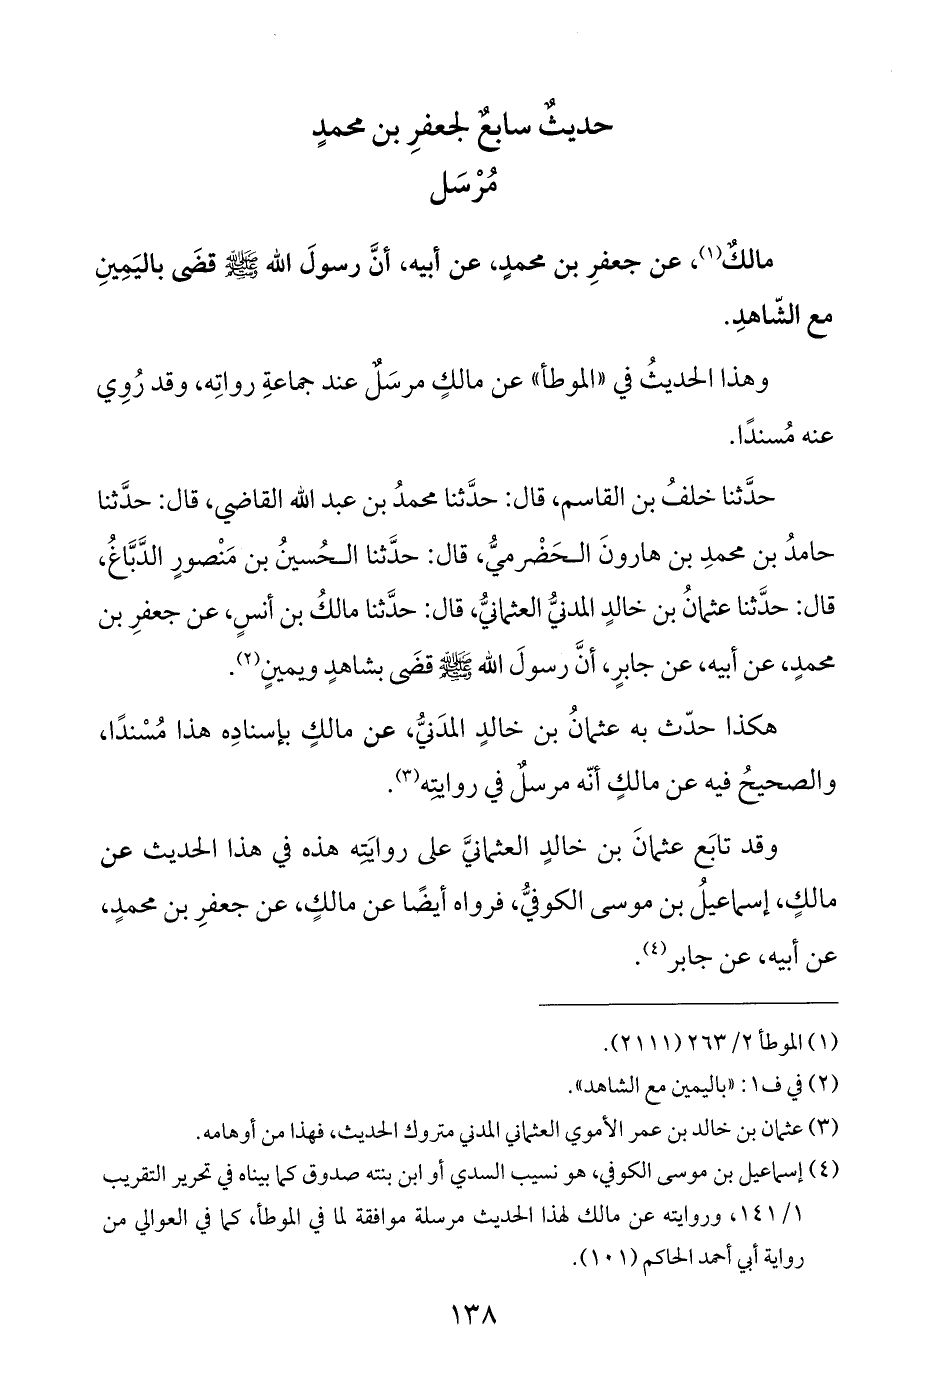 حديثٌ سابعٌ لجعفرِ بن محمدٍ
مُرْسَل
مالكٌ(١)، عن جعفرِ بن محمدٍ، عن أبيه، أنَّ رسولَ الله ﷺ قضَى باليَمِينِ
مع الشّاهدِ.
وهذا الحديثُ في «الموطأ» عن مالكٍ مرسَلٌ عند جماعةِ رواتِه، وقد رُوِي
عنه مُسندًا.
حدَّثنا خلفُ بن القاسم، قال: حدَّثنا محمدُ بن عبد الله القاضي، قال: حدَّثنا
حامدُ بن محمدِ بن هارونَ الحَضْرميُّ، قال: حدَّثنا الحُسينُ بن مَنْصورٍ الدَّبَّاغُ،
قال: حدَّثنا عثمانُ بن خالدٍ المدنيُّ العثمانيُّ، قال: حدَّثنا مالكُ بن أنسٍ، عن جعفرِ بن
محمدٍ، عن أبيه، عن جابرٍ، أنَّ رسولَ الله ﷺ قضَى بشاهدٍ ويمينٍ(٢).
هكذا حدّث به عثمانُ بن خالدٍ المدَنيُّ، عن مالكٍ بإسنادِه هذا مُسْندًا،
والصحيحُ فيه عن مالكٍ أنّه مرسلٌ في روايتِه(٣).
وقد تابَع عثمانَ بن خالدٍ العثمانيَّ على روايَتِه هذه في هذا الحديث عن
مالكٍ، إسماعيلُ بن موسى الكوفيُّ، فرواه أيضًا عن مالكٍ، عن جعفرِ بن محمدٍ،
عن أبيه، عن جابر(٤).
(١) الموطأ ٢/ ٢٦٣ (٢١١١).
(٢) في ف١: «باليمين مع الشاهد».
(٣) عثمان بن خالد بن عمر الأموي العثماني المدني متروك الحديث، فهذا من أوهامه.
(٤) إسماعيل بن موسى الكوفي، هو نسيب السدي أو ابن بنته صدوق كما بيناه في تحرير التقريب
١/ ١٤١، وروايته عن مالك لهذا الحديث مرسلة موافقة لما في الموطأ، كما في العوالي من
رواية أبي أحمد الحاكم (١٠١).
١٣٨